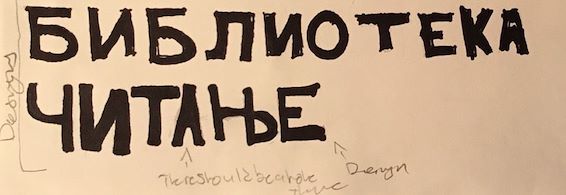 БИБЛИОТЕКА
ЧИТАЊЕ
Designs
There should be a hole there
Design